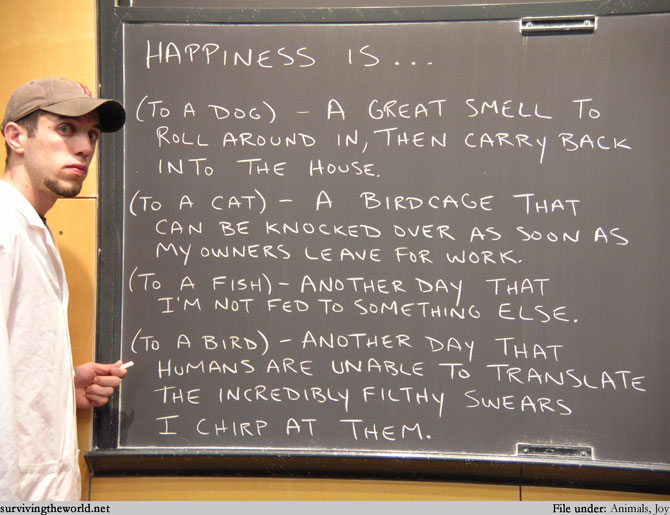 HAPPINESS IS...
(TO A DOG) - A GREAT SMELL TO
ROLL AROUND IN, THEN CARRY BACK
INTO THE HOUSE.
(TO A CAT) - A BIRDCAGE THAT
CAN BE KNOCKED OVER AS SOON AS
MY OWNERS LEAVE FOR WORK.
(TO A FISH) - ANOTHER DAY THAT
I'M NOT FED TO SOMETHING ELSE.
(TO A BIRD) - ANOTHER DAY THAT
HUMANS ARE UNABLE TO TRANSLATE
THE INCREDIBLY FILTHY SWEARS
I CHIRP AT THEM.
survivingtheworld.net File under: Animals, Joy